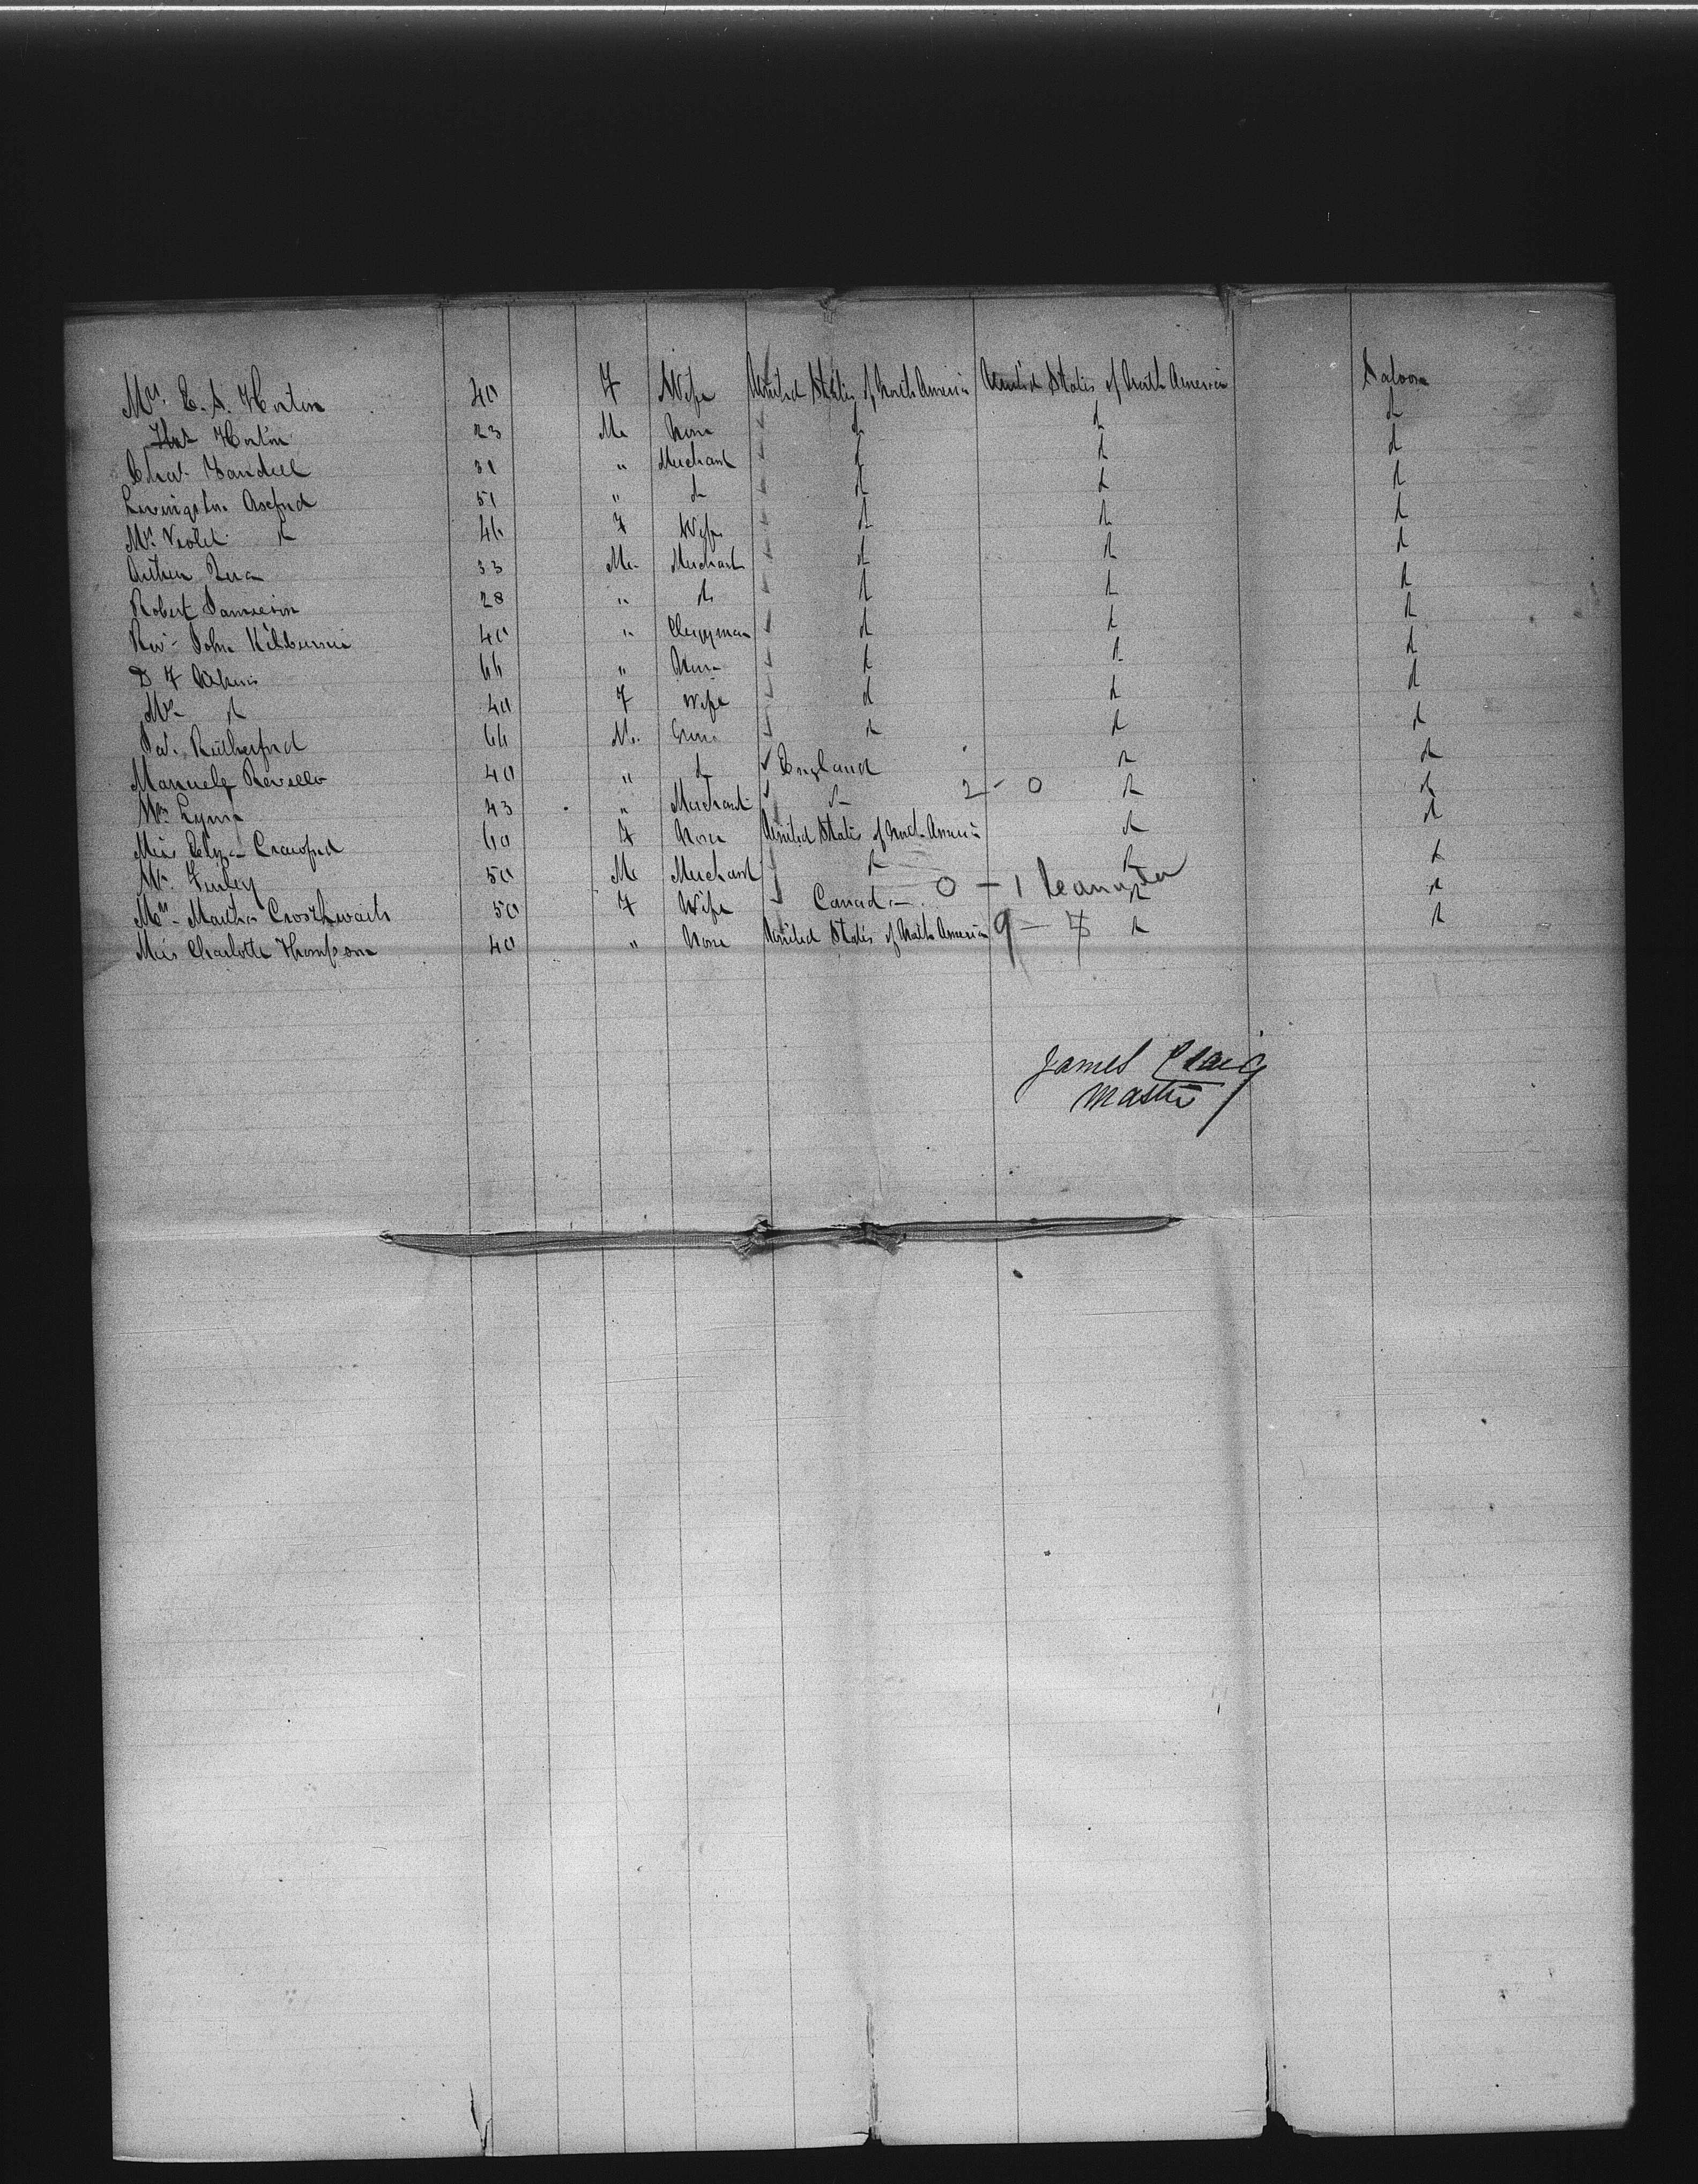 Mrs. E. A. Horton 40 F Wife United States of North America United States of North America Saloon
Horton 23 Me None do do do
Chas. Yandell 31 " Merchant do do do
Livingston Axford 51 " do do do do
Mrs Violet do 46 F Wife do do do
Arthur 33 Me Merchant do do do
Robert Jamieson 28 " do do do do
Rev John 40 " Clergyman do do do
D F 66 " None do do do
Mrs do 40 F Wife do do do
Rutherford 66 Me do do do
Manuel Revello 40 " do England do do
Wm Lynn 43 " Merchant do 2 - 0 do do
Miss Eliza Crawford 60 F None United States of North America do do
Mr. Finley 50 Me Merchant do do do
Mrs Martha Crosthwaite 50 F Wife Canada 0 - 1 do do
Miss Charlotte Thompson 40 " None United States of North America 9 - 7 do do
James Craig
Master